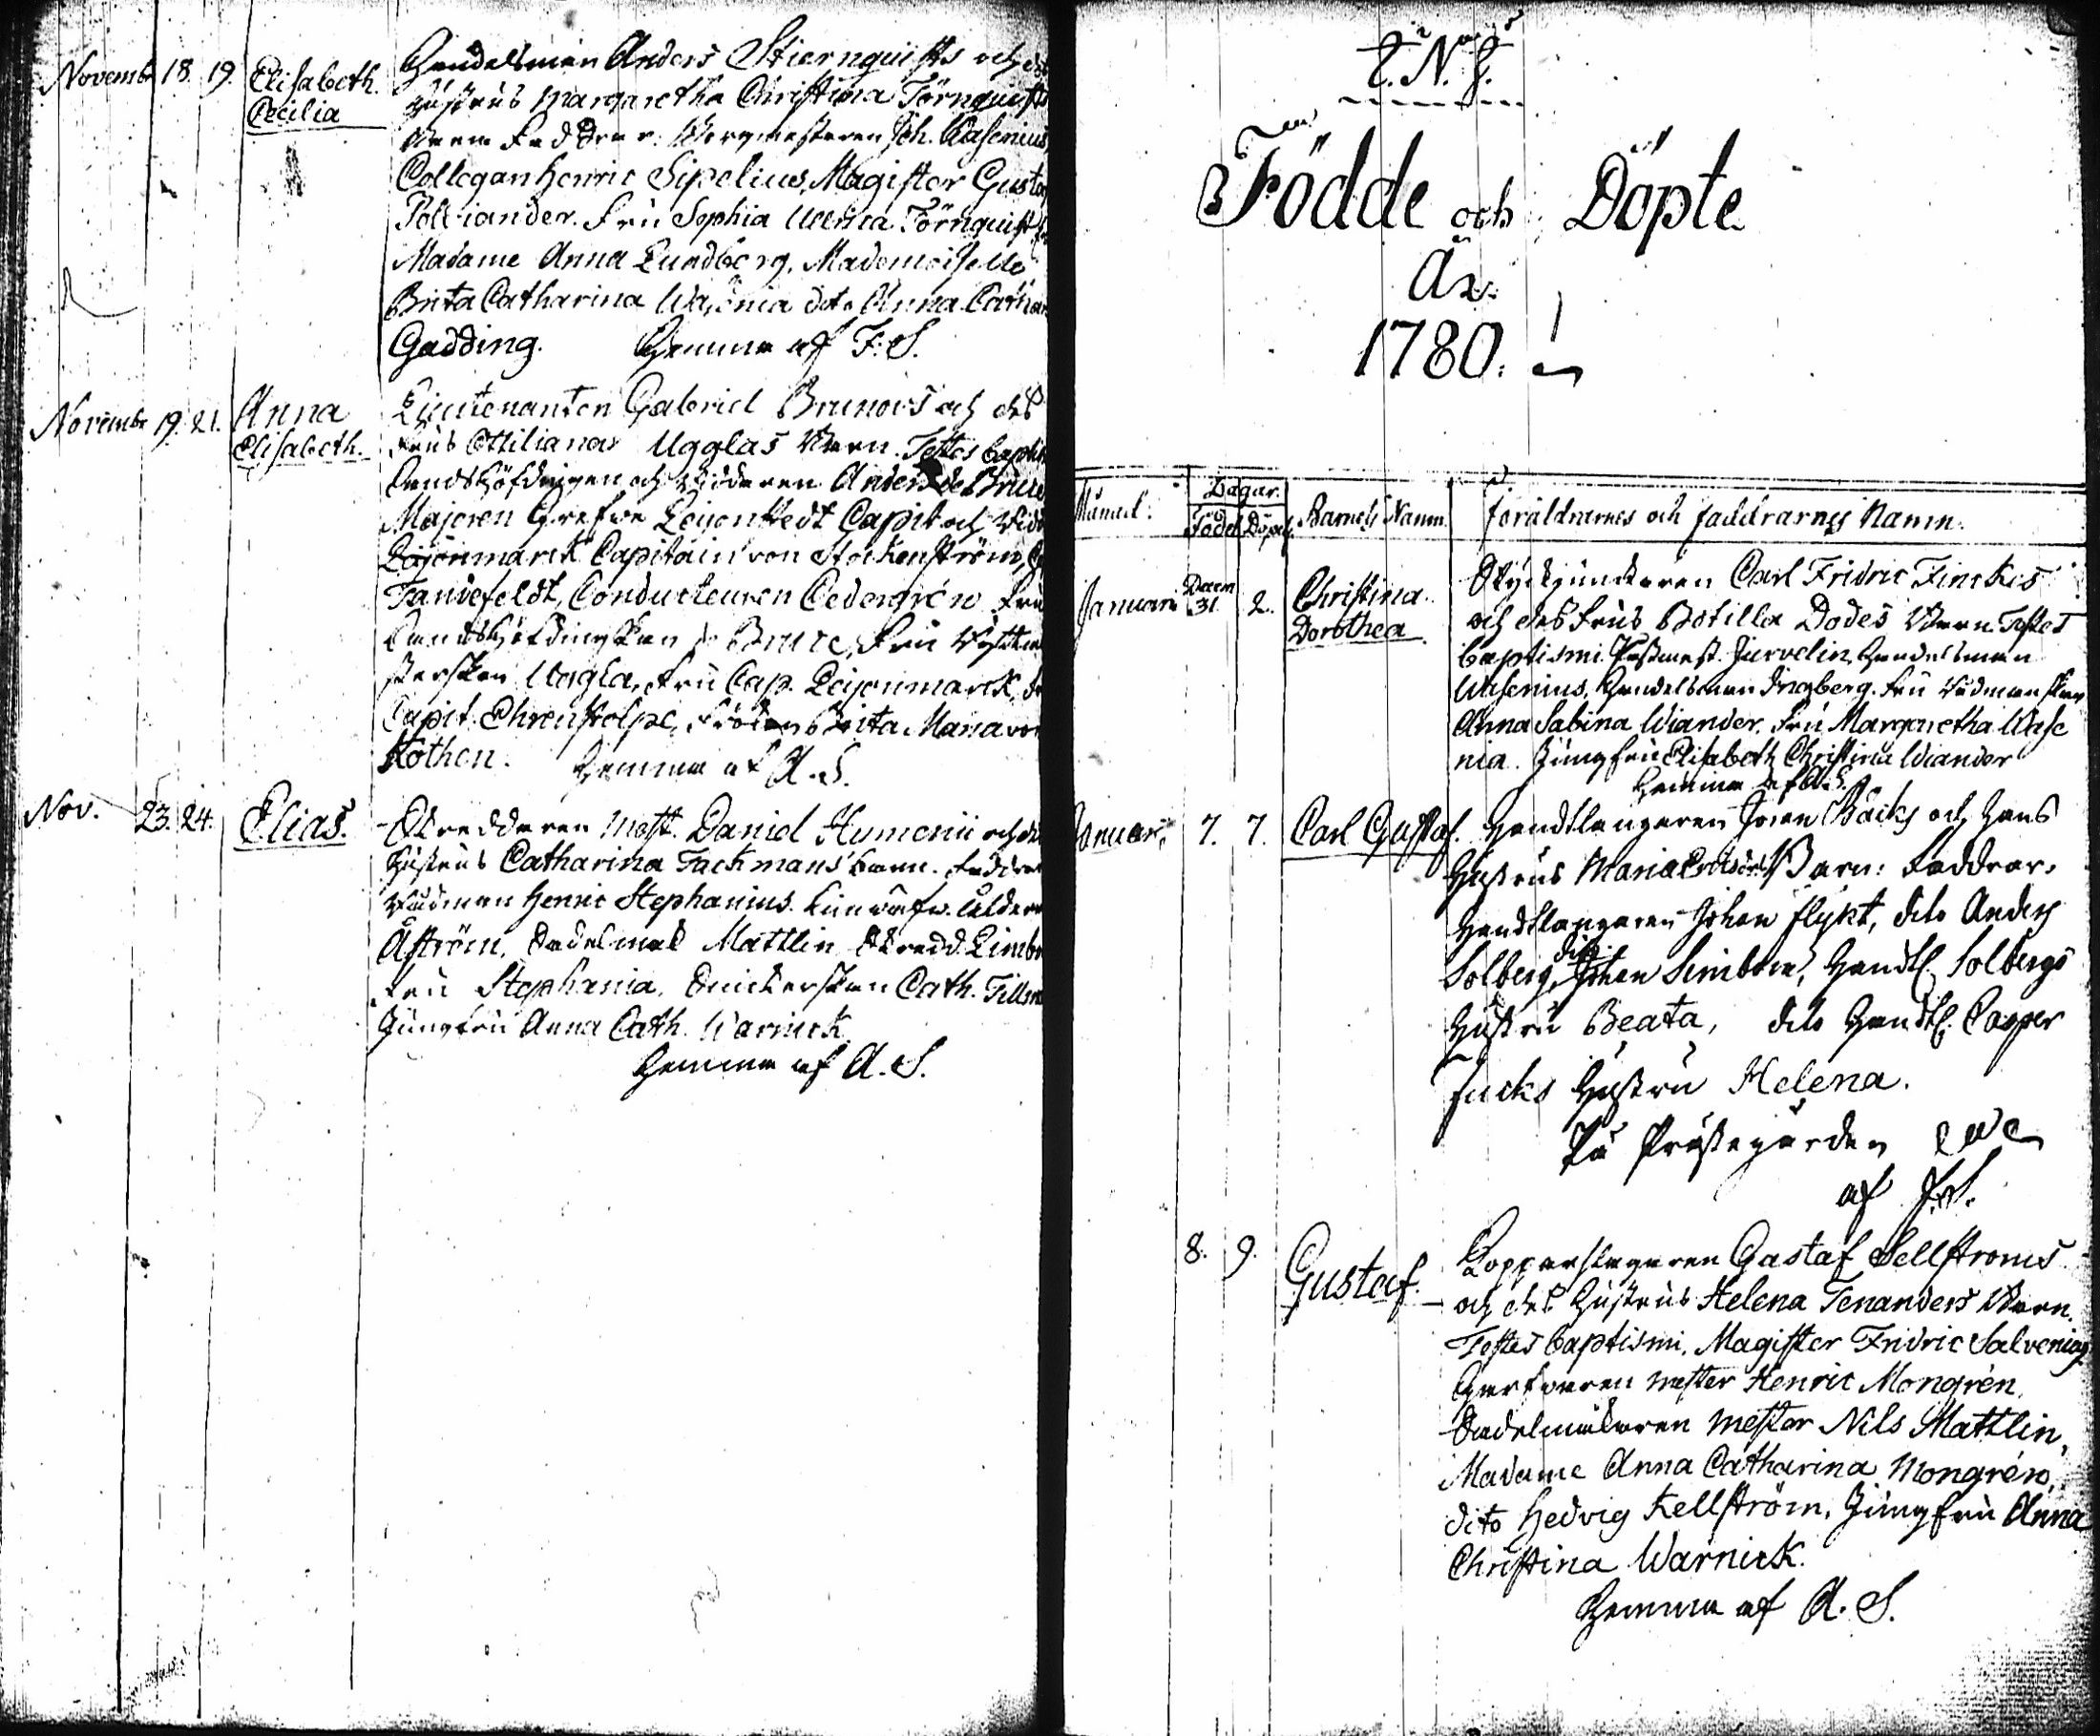 Novembr 18. 19. Elisabeth Cecilia
Handelsman Anders Stiernquists och
hustrus Margaretha Christina Törnquists
Barn Faddrar: Borgmestaren Joh.
Collegan Henric Sipelius, Magister Gustaf
Fru Sophia Törnquist
Madame Anna Lundberg, Mademoiselle
Brita Catharina Wasenia dito Anna Cathar
Gadding. Hemma af F: S.
Novembr 19. 21. Anna Elisabeth.
Lieutenanten Gabriel Brunows och des
Frus Ottilianas Ugglas Barn. Testes baptis
Landshöfdingen och Riddaren Anders de Bruce
Majoren Grefve Leijonstedt Capit och Ridd
Leijonmarck Capitain von Stockenström,
Tandefeldt, Conducteuren Cedergrén Fru
Landshöfdingskan de Bruce, Fru
Uggla, Fru Cap. Leijonmarck, do
Capit. Ehrenstolpe, Fröken Brita Maria von
Köthen. Hemma af A. S.
Nov. 23. 24. Elias.
Skreddaren Mest. Daniel Humenii och des
hustrus Catharina Tackmans barn. Faddrar
Rådman Henric Stephanius.
Åström, Sadelmak Mattlin Skredd. Limb
Fru Stephania, Snickerskan Cath. Tillm
Jungfru Anna Cath. Warnick
Hemma af A. S.
I. N. J.
Födde och Döpte
År
1780.
Månad. Dagar. Barnets Namn. Föräldrarnes och faddrarnes Namn.
Född Döpt.
Januarii Decem 31. 2. Christina Dorothea
Styckjunkaren Carl Fridric Finckes
och des Frus Botilla Dodes Barn. Testes
baptismi. Postmest. Jurvelin, Handelsman
Wasenius, Handelsman Ingberg. Fru Rådmanskan
Anna Sabina Wiander, Fru Margaretha Wase
nia. Jungfru Elisabeth Christina Wiander
Hemma af A. S.
Januari, 7. 7. Carl Gustaf.
Handtlangaren Johan Bäcks och hans
Hustrus Maria Barn: Faddrar.
Handtlangaren Johan flykt, dito Anders
Solberg, dito Johan Simbom, Handtl. Solbergs
Hustru Beata, dito Handtl. Casper
Fucks Hustru Helena.
På Prästegården
af F. S.
8. 9. Gustaf.
Kopparslagaren Gustaf Sellströms
och des hustrus Helena Tenanders Barn.
Testes baptismi. Magister Fridric Salvenius
Garfvaren Mester Henric Mongrén,
Sadelmakaren Mester Nils Mattlin,
Madame Anna Catharina Mongrén,
dito Hedvig Kellström, Jungfru Anna
Christina Warnick.
Hemma af A. S.